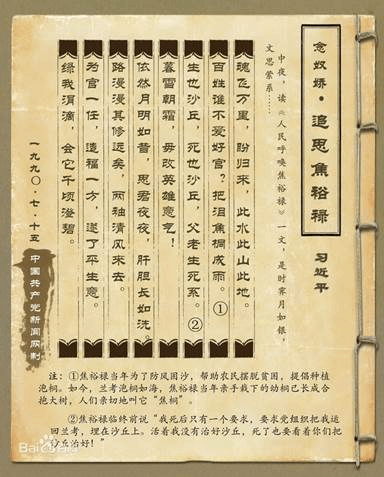 念奴娇·追思焦裕禄
习近平
中夜，读《人民呼唤焦裕禄》一文，是时霁月如银，
文思萦系……
魂飞万里，盼归来，此水此山此地。
百姓谁不爱好官？把泪焦桐成雨。①
生也沙丘，死也沙丘，父老生死系。②
暮雪朝霜，毋改英雄意气！
依然月明如昔，思君夜夜，肝胆长如洗。
路漫漫其修远矣，两袖清风来去。
为官一任，造福一方，遂了平生意。
绿我涓滴，会它千顷澄碧。
一九九〇·七·十五
中国共产党新闻网制
注：①焦裕禄当年为了防风固沙，帮助农民摆脱贫困，提倡种植
泡桐。如今，兰考泡桐如海，焦裕禄当年亲手栽下的幼桐已长成合
抱大树，人们亲切地叫它“焦桐”。
②焦裕禄临终前说“我死后只有一个要求，要求党组织把我运
回兰考，埋在沙丘上。活着我没有治好沙丘，死了也要看着你们把
沙丘治好！”
Baidu百科